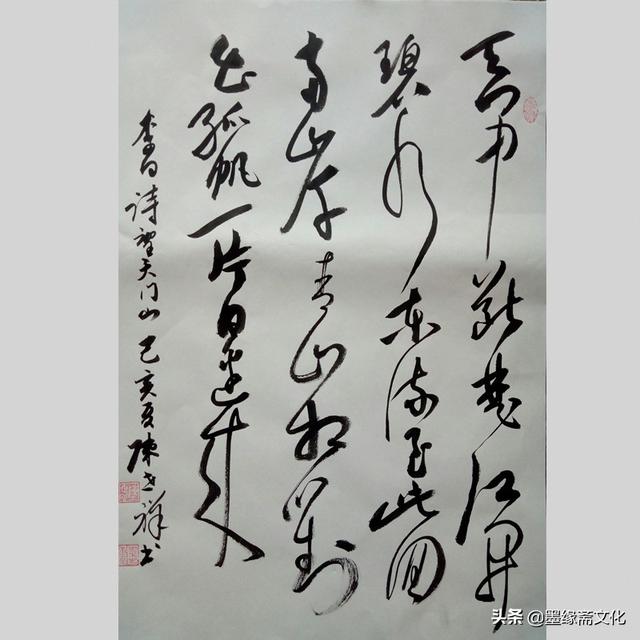 天门中断楚江開
碧水东流至此回
两岸青山相对
出孤帆一片日边来
李白诗望天门山 己亥夏陳世祥书
头条 @墨缘斋文化